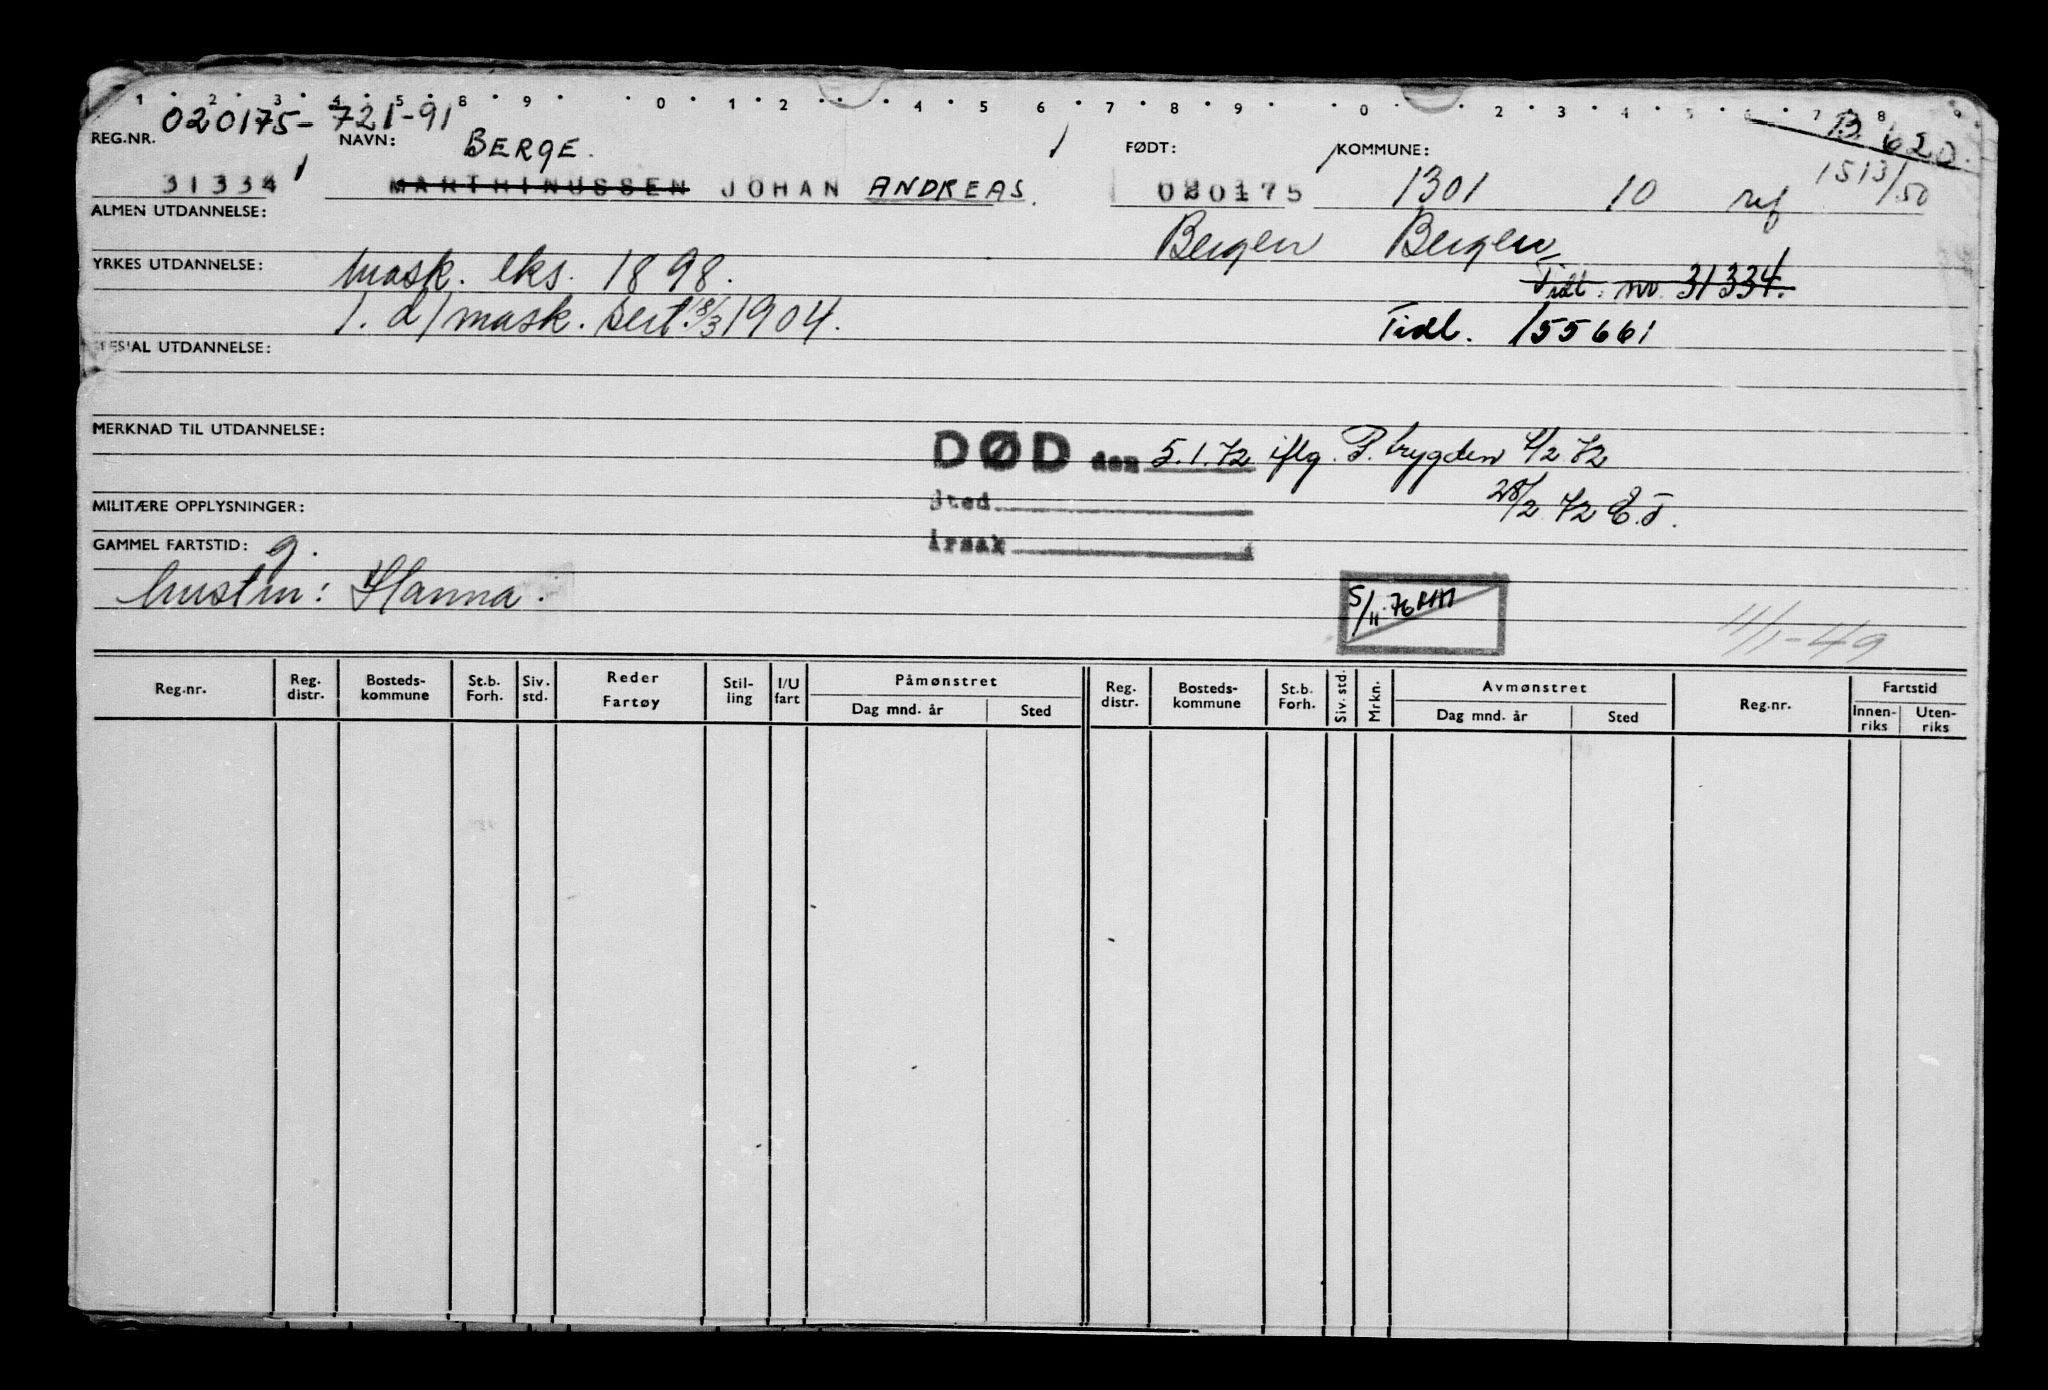 1 · 2 · 3 · 4 · 5 · 8 · 9 · · 0 · 1 · 2 · · 4 · 5 · 6 · 7 · 8 · 9 · · 0 · · 2 · 3 · 4 · 5 · 6 · 7 · 8 · 9
020175-721-91
REG.NR. NAVN: BERGE. FØDT: KOMMUNE: B. 620.
31334 MARTHINUSSEN JOHAN ANDREAS. 020175 1301 10 1513/50
ALMEN UTDANNELSE: Bergen Bergen
YRKES UTDANNELSE: mask. eks. 1898. Tidl. nr. 31334.
1. d/mask. sert. 18/3 1904. Tidl. 155661
SPESIAL UTDANNELSE:
MERKNAD TIL UTDANNELSE: DØD den 5.1.72 iflg. P. trygden 4/2 72
MILITÆRE OPPLYSNINGER: Sted 28/2 72 E.T.
GAMMEL FARTSTID: g. Årsak
hustru: Hanna. S/11.76 11/1-49
Reg.nr. Reg. distr. Bosteds-kommune St.b. Forh. Siv. std. Reder Fartøy Stil-ling I/U fart Påmønstret Reg. distr. Bosteds-kommune St.b. Forh. Siv. std. Mrkn. Avmønstret Reg.nr. Fartstid
Dag mnd. år Sted Dag mnd. år Sted Innen-riks Uten-riks